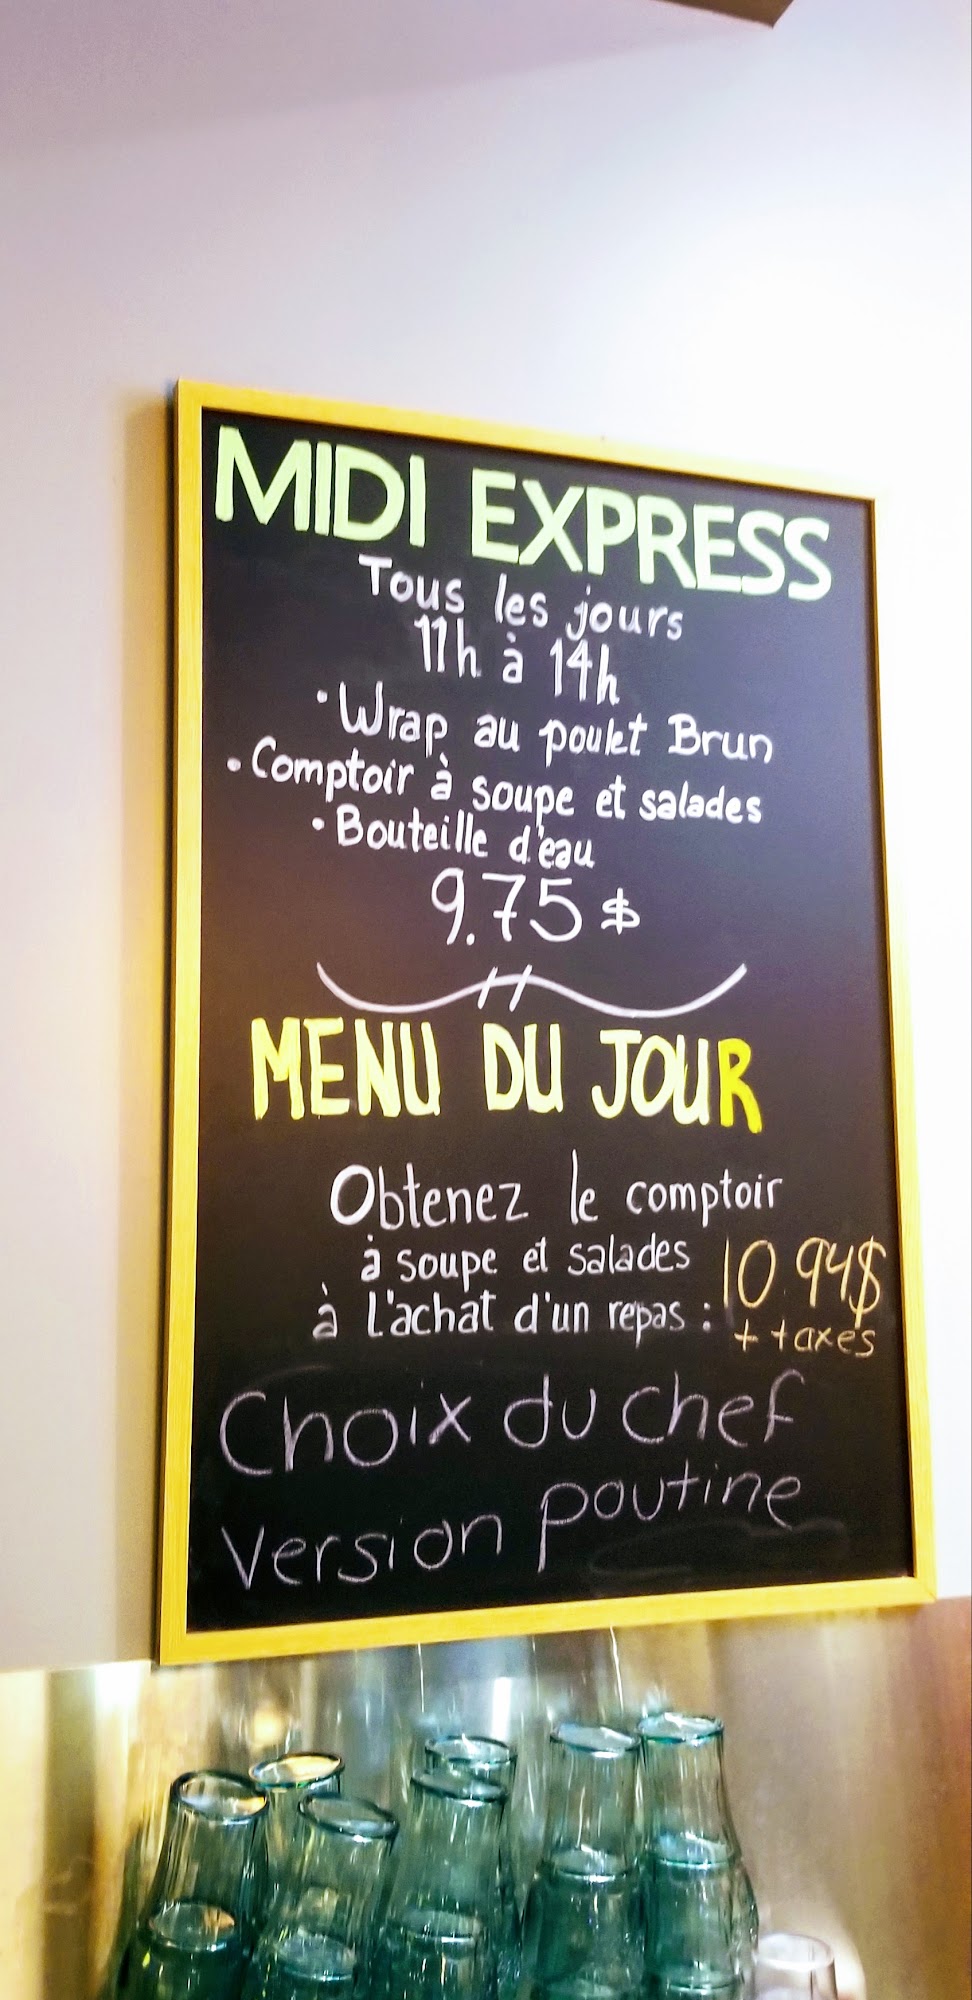 MIDI EXPRESS
Tous les jours
11h à 14h
• Wrap au poulet Brun
• Comptoir à soupe et salades
• Bouteille d'eau
9.75 $
MENU DU JOUR
Obtenez le comptoir
à soupe et salades
à l'achat d'un repas : 10.94$
+ taxes
Choix du chef
version poutine